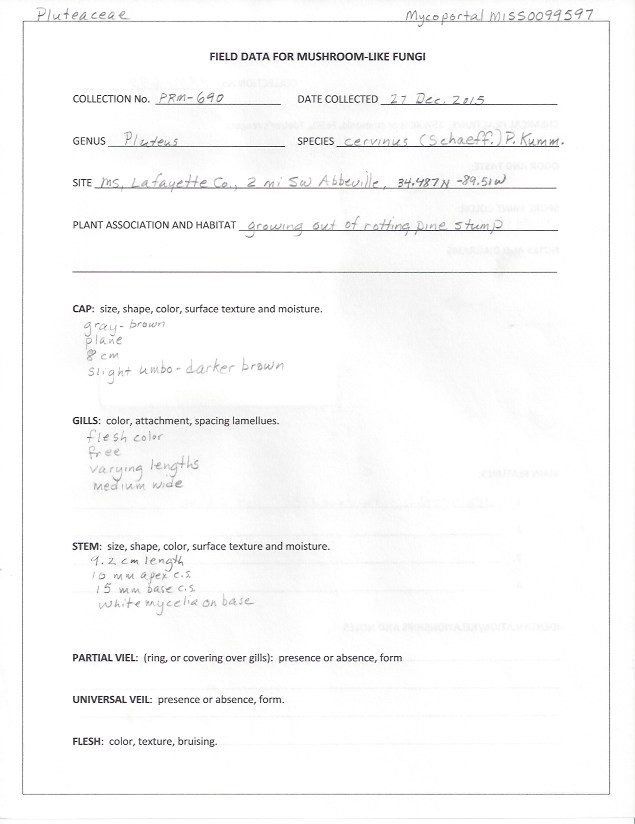 Pluteaceae Mycoportal MISS0099597
FIELD DATA FOR MUSHROOM-LIKE FUNGI
COLLECTION No. PRM-690 DATE COLLECTED 27 Dec. 2015
GENUS Pluteus SPECIES cervinus (Schaeff.) P. Kumm.
SITE MS, Lafayette Co., 2 mi SW Abbeville, 34.487N -89.51W
PLANT ASSOCIATION AND HABITAT growing out of rotting pine stump
CAP: size, shape, color, surface texture and moisture.
gray-brown
plane
8 cm
slight umbo - darker brown
GILLS: color, attachment, spacing lamellues.
flesh color
free
varying lengths
medium wide
STEM: size, shape, color, surface texture and moisture.
9.2 cm length
10 mm apex c.s.
15 mm base c.s.
white mycelia on base
PARTIAL VIEL: (ring, or covering over gills): presence or absence, form
UNIVERSAL VEIL: presence or absence, form.
FLESH: color, texture, bruising.